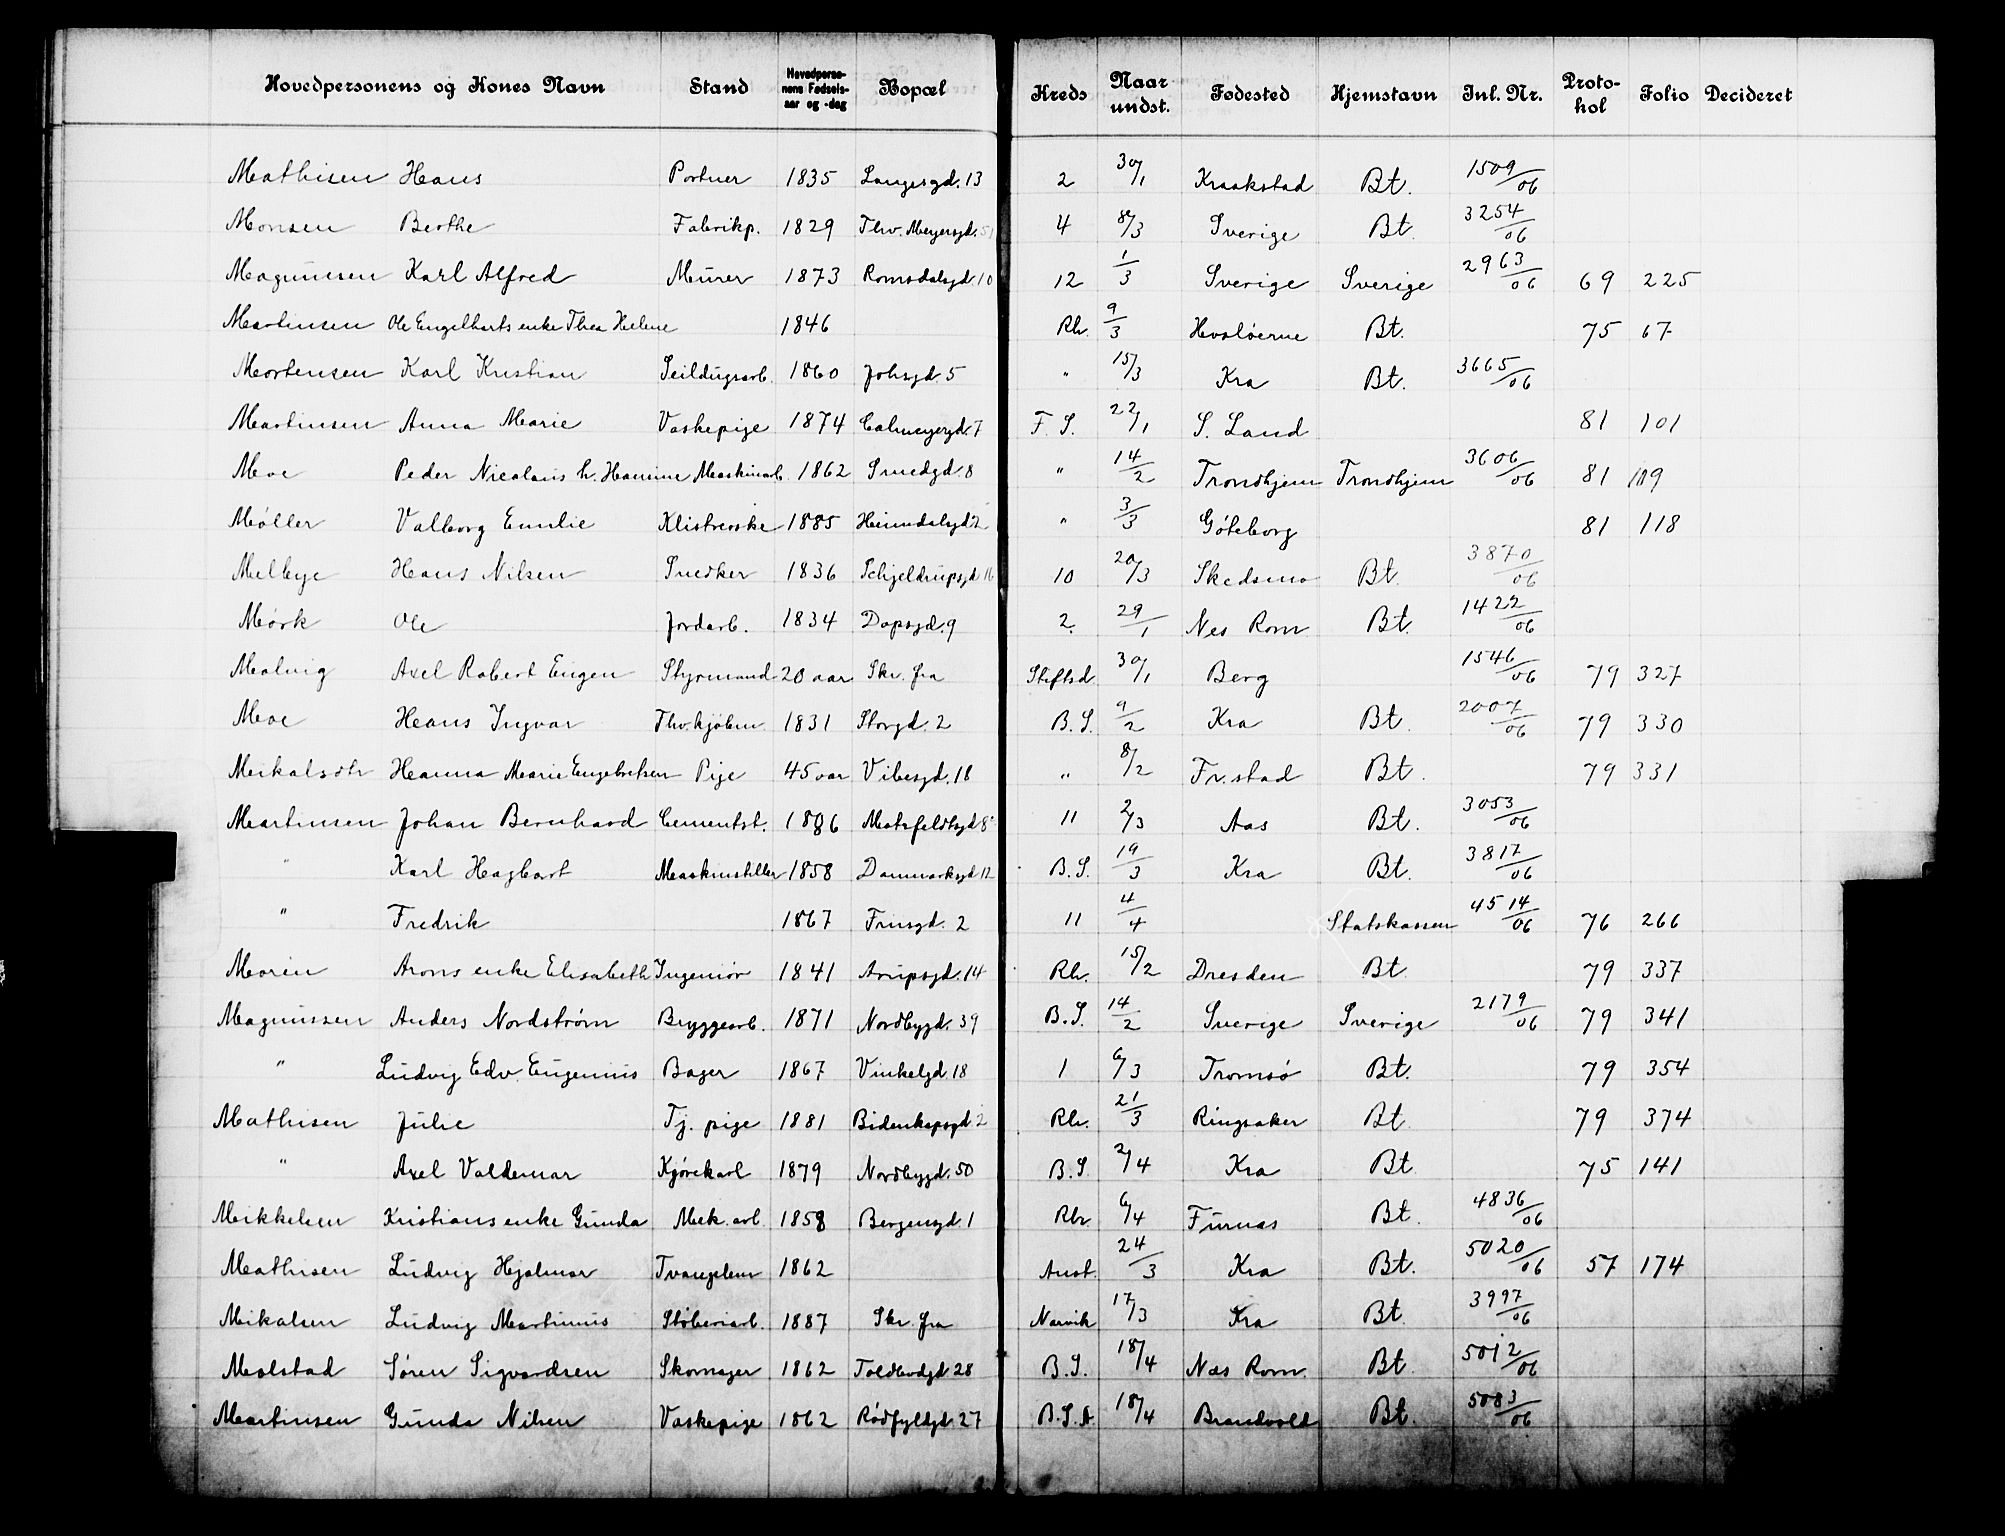 Hovedpersonens og Kones Navn Stand Hovedperso-nens Fødsels-aar og -dag Bopæl Kreds Naar undst. Fødested Hjemstavn Inl. Nr. Proto-kol Folio Decideret
Mathisen Hans Portner 1835 Langesgd. 13 2 30/1 Kraakstad Bt. 1509/06
Monsen Berthe Fabrikp. 1829 Thv. Meyersgd. 51 4 8/3 Sverige Bt. 3254/06
Magnussen Karl Alfred Murer 1873 Romsdalsgd. 10 12 1/3 Sverige Sverige 2963/06 69 225
Martinsen Ole Engelharts enke Thea Helene 1846 Rh. 9/3 Hvaløerne Bt. 75 67
Mortensen Karl Kristian Seildugsarb. 1860 Johsgd. 5 " 15/3 Kra Bt. 3665/06
Martinsen Anna Marie Vaskepige 1874 Calmeyergd. 7 F. S. 22/1 S. Land 81 101
Moe Peder Nicolaus h. Hansine Maskinarb. 1862 Smedgd. 8 " 14/2 Trondhjem Trondhjem 3606/06 81 119
Møller Valborg Emilie Klistrerske 1885 Heimdalsgd 2 " 3/3 Göteborg 81 118
Melbye Hans Nilsen Snedker 1836 Schjeldrupsgd 16 10 20/3 Skedsmo Bt. 3870/06
Mørk Ole Jordarb. 1834 Dopsgd. 9 2. 29/1 Nes Rom Bt. 1422/06
Malvig Axel Robert Eugen Styrmand 20 aar Skr. fra Stiftsd. 30/1 Berg 1546/06 79 327
Moe Hans Ingvar Thv.kjøbm. 1831 Storgd. 2 B. S. 9/2 Kra Bt. 2007/06 79 330
Mikalsdtr Hanna Marie Engebretsen Pige 45 aar Vibesgd. 18 " 8/2 Fr.stad Bt. 79 331
Martinsen Johan Bernhard Cementst. 1886 Motzfeldtsgd 8 11 2/3 Aas Bt. 3053/06
" Karl Hagbart Maskinstiller 1858 Danmarksgd 12 B. S. 19/3 Kra Bt. 3817/06
" Fredrik 1867 Friisgd. 2 11 4/4 Statskassen 4514/06 76 266
Morin Arons enke Elisabeth Ingeniør 1841 Arupsgd. 14 Rh. 15/2 Dresden Bt. 79 337
Magnussen Anders Nordstrøm Bryggearb. 1871 Nordbygd. 39 B. S. 14/2 Sverige Sverige 2179/06 79 341
" Ludvig Edv. Eugenius Bager 1867 Vinkelgd. 18 1 6/3 Tromsø Bt. 79 354
Mathisen Julie Tj. pige 1881 Bidenkapsgd 2 Rh. 21/3 Ringsaker Bt. 79 374
" Axel Valdemar Kjørekarl 1879 Nordbygd. 50 B. S. 2/4 Kra Bt 75 141
Mikkelsen Kristians enke Gunda Mek. arb. 1858 Bergensgd. 1 Rh. 6/4 Furnas Bt. 4836/06
Mathisen Ludvig Hjalmar Tvangslem 1862 Anst. 24/3 Kra Bt. 5020/06 57 174
Mikalsen Ludvig Martinius Støberiarb. 1887 Skr. fra Narvik 17/3 Kra Bt. 3997/06
Malstad Søren Sigvardsen Skomager 1862 Toldbodgd. 28 B. S. 18/4 Næs Rom. Bt. 5012/06
Martinsen Gunda Nilsen Vaskepige 1862 Rødfyldgd. 27 B. S. A. 18/4 Brandvold Bt. 5083/06